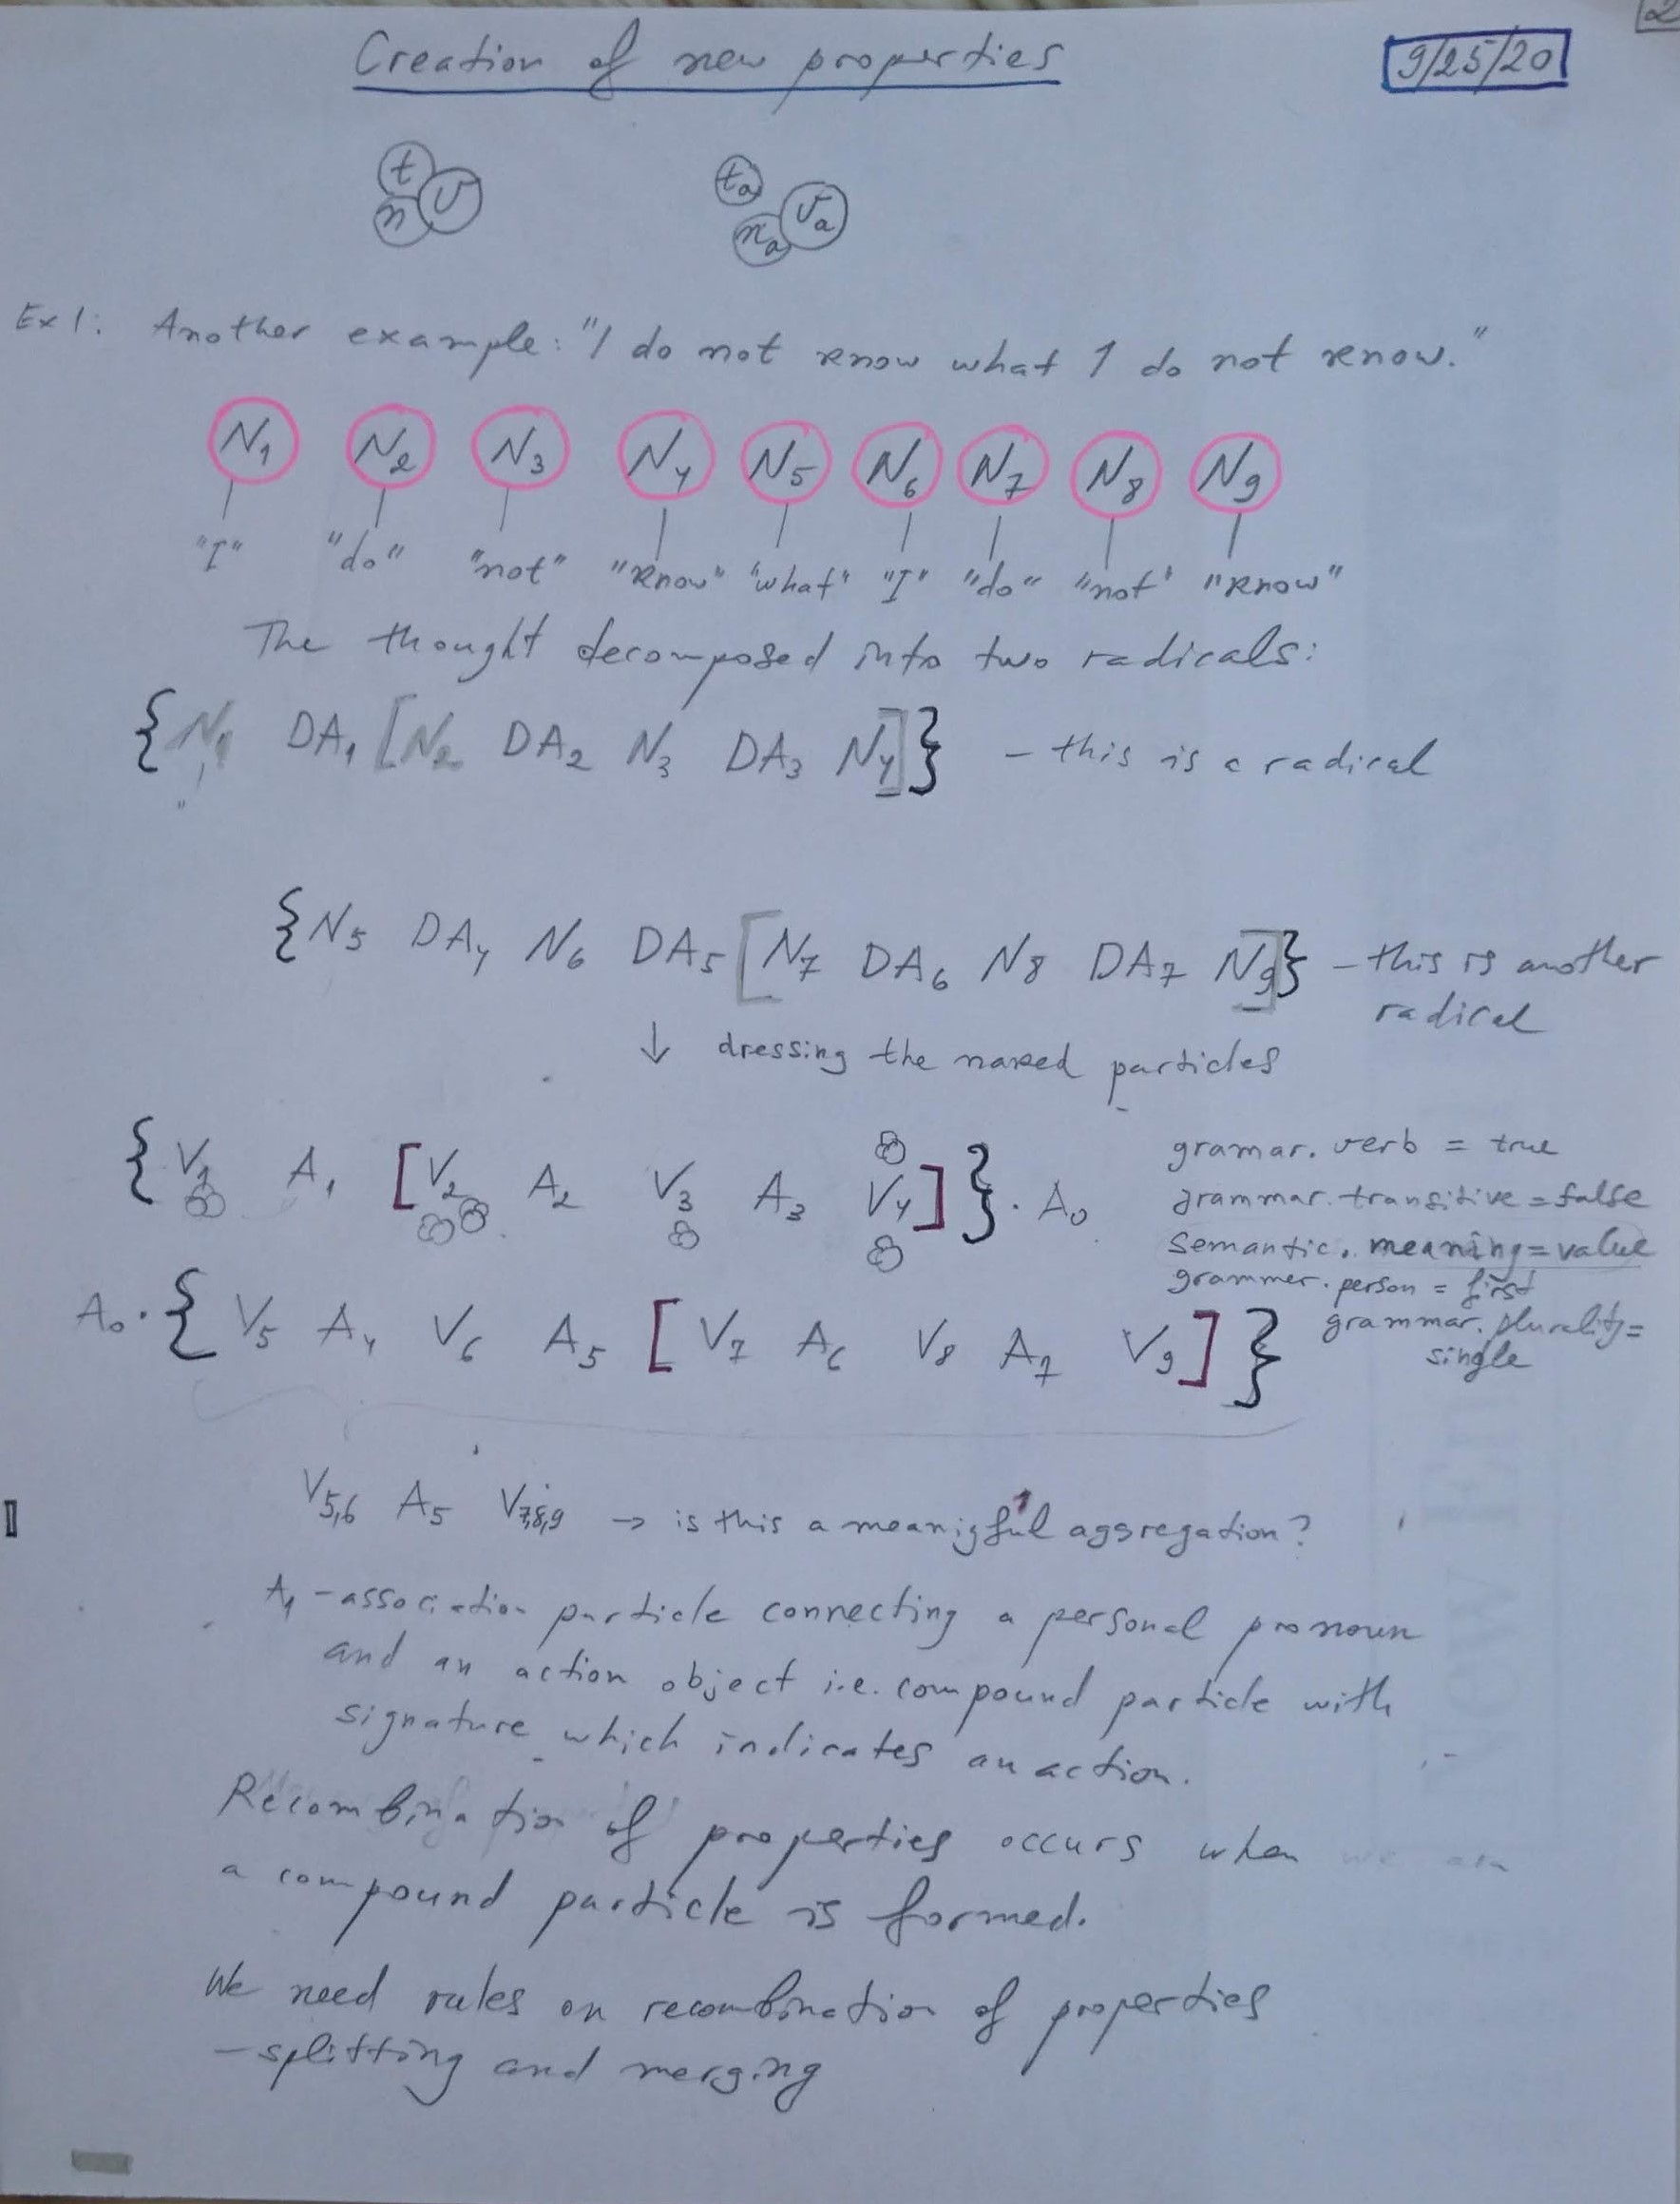 2
Creation of new properties
9/25/20
t v n
ta va na
Ex 1: Another example: "I do not know what I do not know."
N1 N2 N3 N4 N5 N6 N7 N8 N9
"I" "do" "not" "know" "what" "I" "do" "not" "know"
The thought decomposed into two radicals:
{N1 DA1 [N2 DA2 N3 DA3 N4]} - this is a radical
{N5 DA4 N6 DA5 [N7 DA6 N8 DA7 N9]} - this is another
radical
↓ dressing the naked particles
{V1 A1 [V2 A2 V3 A3 V4]} · A0
gramar. verb = true
grammar. transitive = false
semantic. meaning = value
grammer. person = first
grammar. plurality =
single
A0 · {V5 A4 V6 A5 [V7 A6 V8 A7 V9]}
V5,6 A5 V7,8,9 → is this a meanigful aggregation?
A1 - association particle connecting a personal pronoun
and an action object i.e. compound particle with
signature which indicates an action.
Recombination of properties occurs when
a compound particle is formed.
We need rules on recombination of properties
- splitting and merging